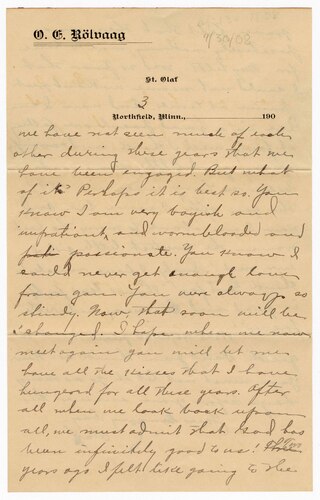 O. E. Rölvaag
4/30/08
St. Olaf
3
Northfield, Minn., 190
we have not seen much of each
other during these years that we
have been engaged. But what
of it? Perhaps it is best so. You
know I am very boyish and
impatient, and warmblooded and
passionate. You know I
could never get enough love
from you. You were always so
stindy. Now, that soon will be
changed. I hope when we now
meet again you will let me
have all the kisses that I have
hungered for all these years. After
all when we look back upon
all, we must admit that God has
been infinitely good to us! Three Two
years ago I felt like going to the